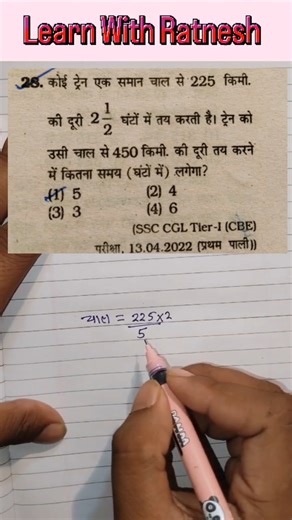 Learn With Ratnesh
28. कोई ट्रेन एक समान चाल से 225 किमी.
की दूरी 2 1/2 घंटों में तय करती है। ट्रेन को
उसी चाल से 450 किमी. की दूरी तय करने
में कितना समय (घंटों में) लगेगा?
(1) 5 (2) 4
(3) 3 (4) 6
(SSC CGL Tier-I (CBE)
परीक्षा, 13.04.2022 (प्रथम पाली))
चाल = 225×2
5